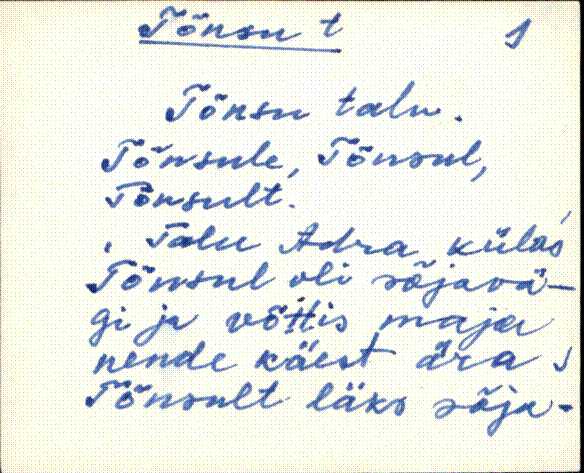 Tõnsu t 1
Tõnsu talu.
Tõnsule, Tõnsul,
Tõnsult.
Talu Adra külas
Tõnsul oli sõjavä-
gi ja võttis maja
nende käest ära
Tõnsult läks sõja-